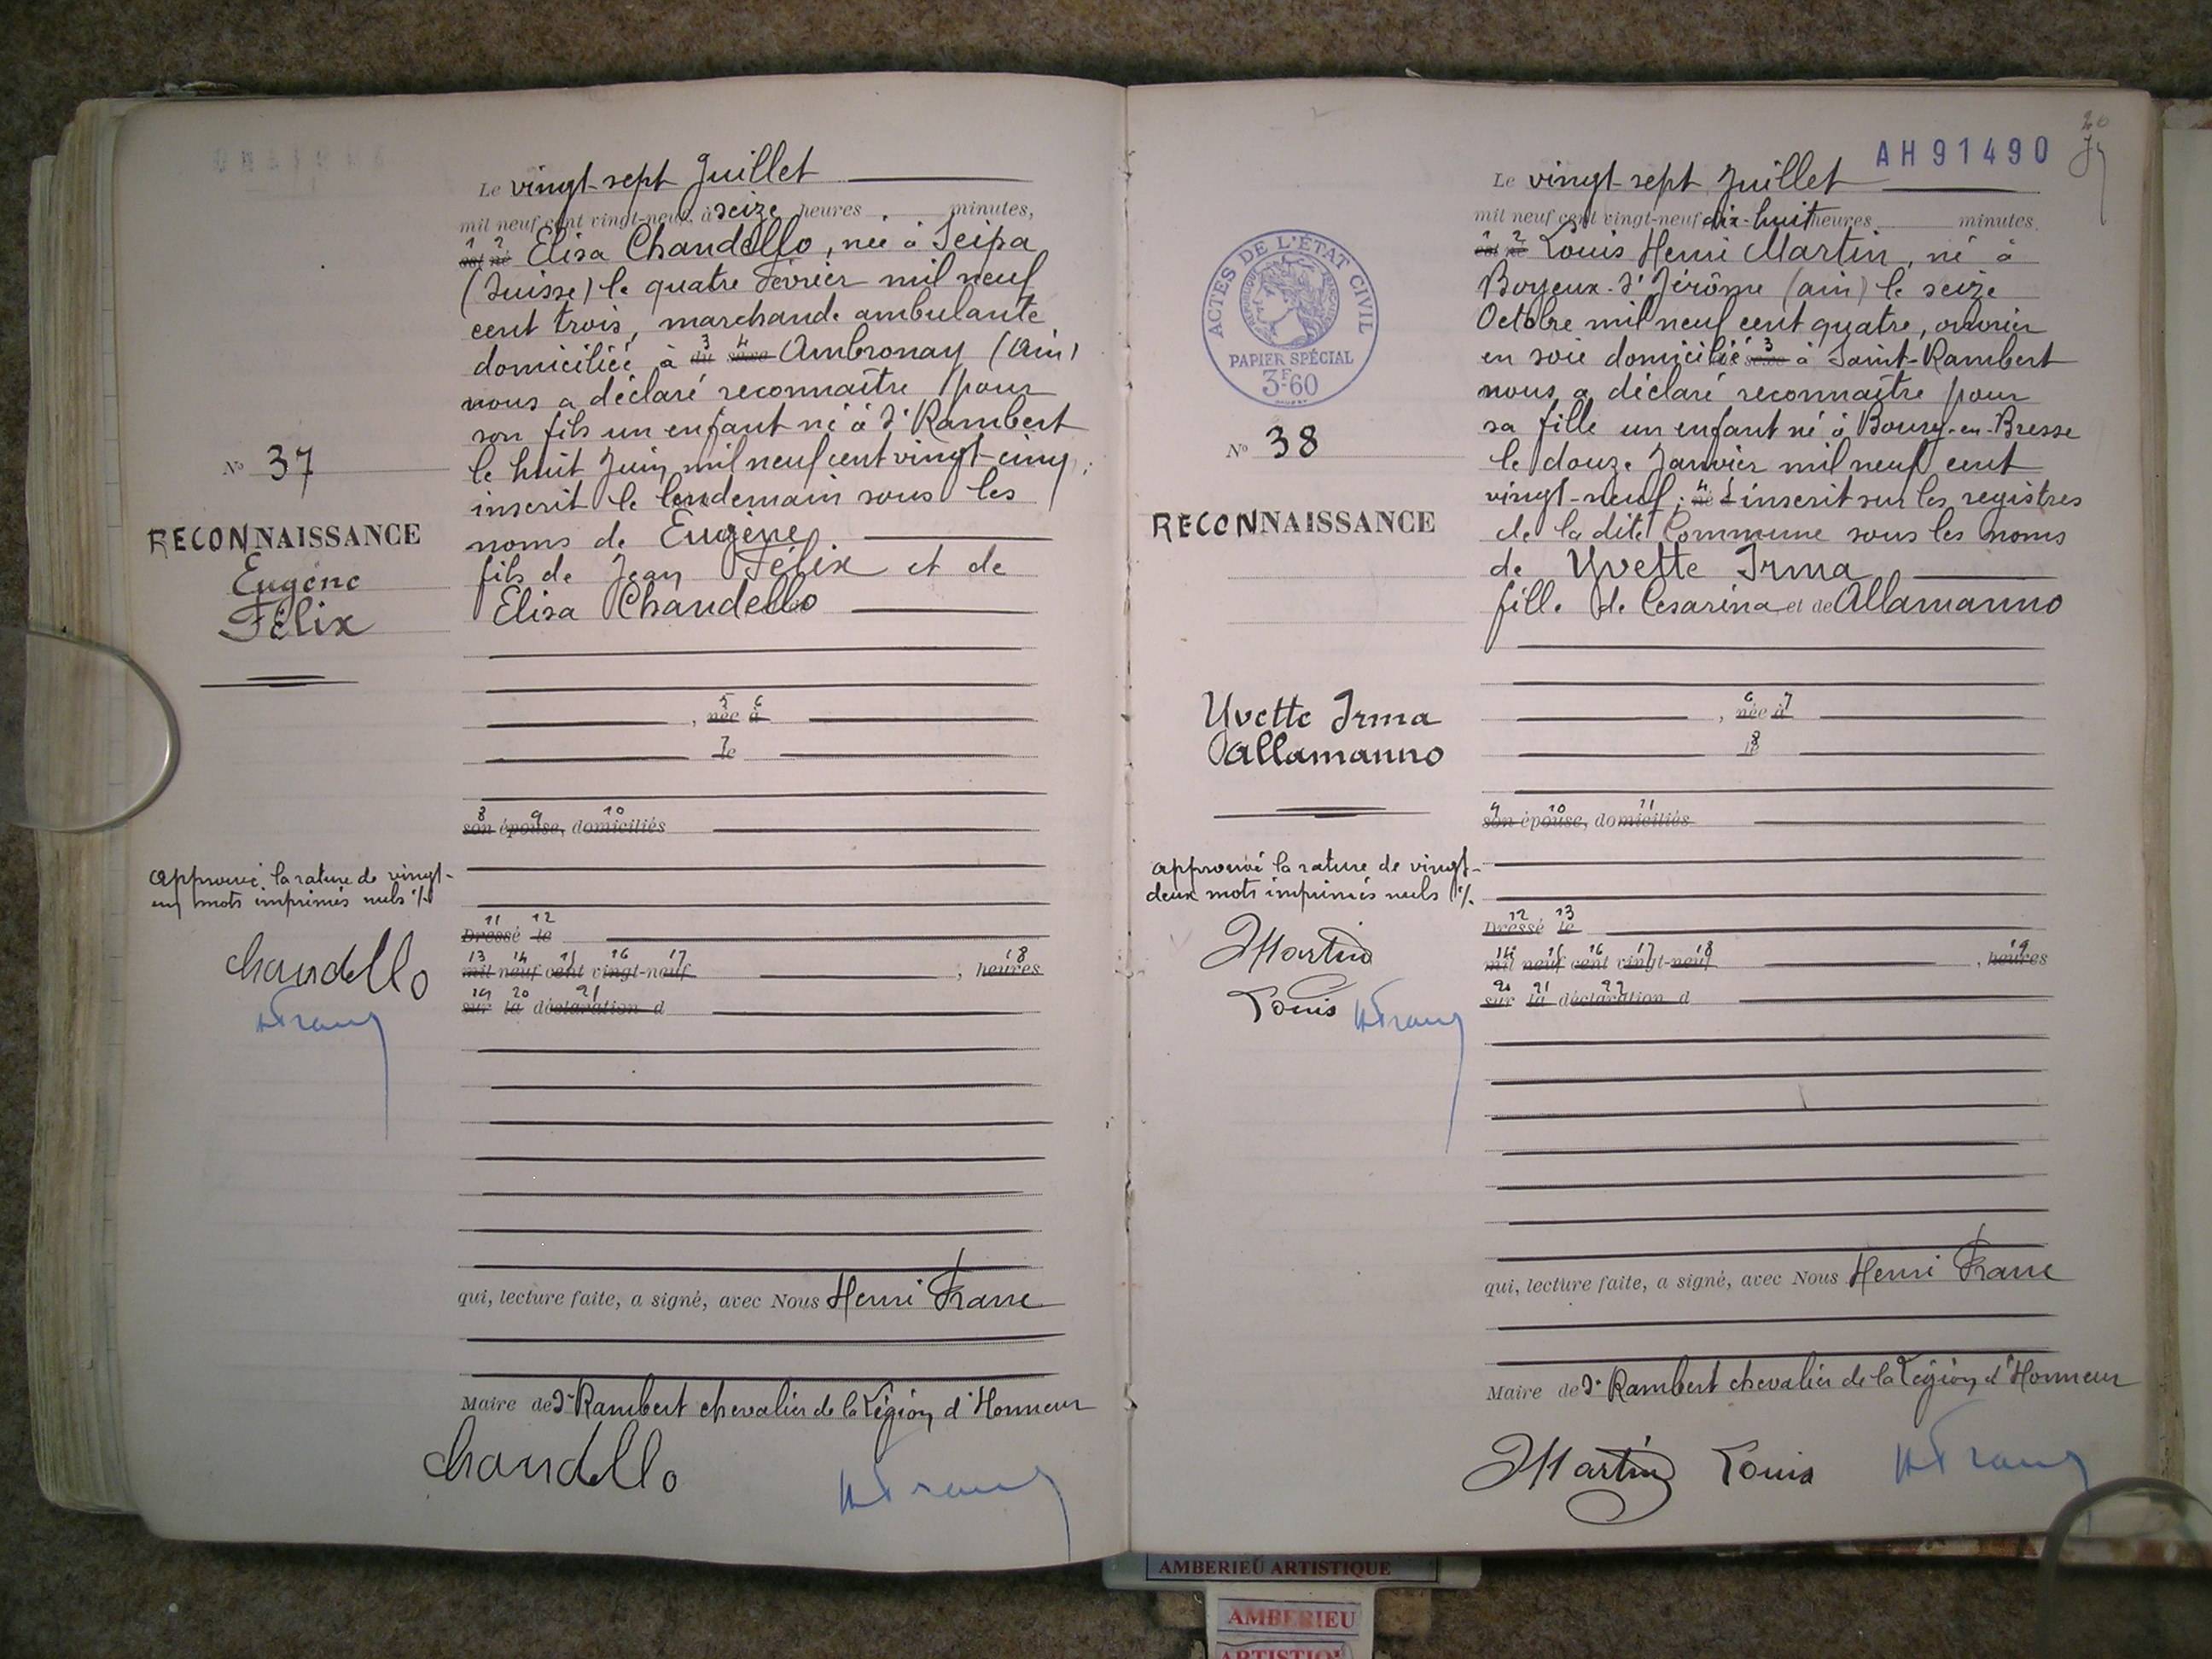 Le vingt-sept Juillet
mil neuf cent vingt-neuf, à seize heures minutes,
1 2
est né Elisa Chandello, née à Seipa
(Suisse) le quatre Février mil neuf
cent trois, marchande ambulante
3 4
domiciliée à du sexe Ambronay (Ain)
nous a déclaré reconnaître pour
son fils un enfant né à St Rambert
le huit Juin mil neuf cent vingt-cinq;
inscrit le lendemain sous les
noms de Eugène
fils de Jean Félix et de
Elisa Chandello
No 37
RECONNAISSANCE
Eugène
Félix
5 6
, née à
7
le
8 9 10
son épouse, domiciliés
Approuvé la rature de vingt-
un mots imprimés nuls
Chandello
HFranc
11 12
Dressé le
13 14 15 16 17 18
mil neuf cent vingt-neuf , heures
19 20 21
sur la déclaration d
qui, lecture faite, a signé, avec Nous Henri Franc
Maire de St Rambert chevalier de la Légion d'Honneur
Chandello HFranc
AH91490
20
Le vingt-sept Juillet
mil neuf cent vingt-neuf dix-huit heures minutes.
1 2
est né Louis Henri Martin, né à
Boyeux-St Jérôme (ain) le seize
Octobre mil neuf cent quatre, ouvrier
3
en soie domicilié sexe à Saint-Rambert
nous a déclaré reconnaître pour
sa fille un enfant né à Bourg-en-Bresse
le douze Janvier mil neuf cent
4
vingt-neuf; inscrit sur les registres
de la dite Commune sous les noms
de Yvette Irma
fille de Cesarina et de Allamanno
ACTES DE L'ÉTAT CIVIL
RÉPUBLIQUE FRANÇAISE
PAPIER SPÉCIAL
3F60
No 38
RECONNAISSANCE
Yvette Irma
Allamanno
6 7
, née à
8
le
9 10 11
son épouse, domiciliés
approuvé la rature de vingt-
deux mots imprimés nuls
Martin
Louis HFranc
12 13
Dressé le
14 15 16 17 18 19
mil neuf cent vingt-neuf , heures
20 21 22
sur la déclaration d
qui, lecture faite, a signé, avec Nous Henri Franc
Maire de St Rambert chevalier de la Légion d'Honneur
Martin Louis HFranc
AMBERIEU ARTISTIQUE
AMBERIEU
ARTISTIQUE